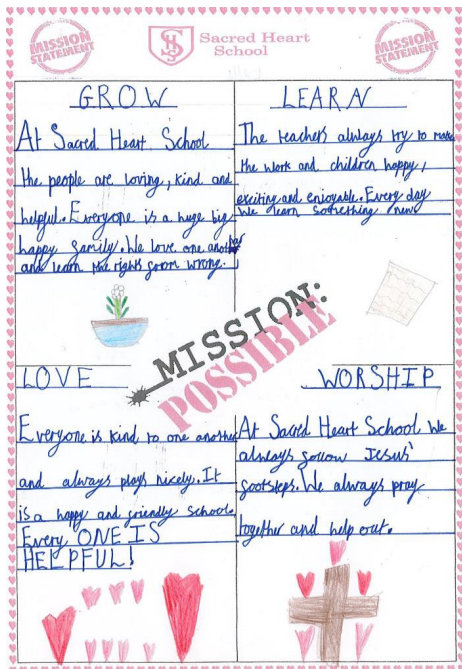 MISSION STATEMENT
Sacred Heart
School
MISSION STATEMENT
GROW
At Sacred Heart School
the people are loving, kind and
helpful. Everyone is a huge big
happy family. We love one another
and learn the rights from wrong.
LEARN
The teachers always try to make
the work and children happy,
exciting and enjoyable. Every day
We learn something new
MISSION:
POSSIBLE
LOVE
Everyone is kind to one another
and always plays nicely. It
is a happy and friendly school.
Every ONE IS
HELPFUL!
WORSHIP
At Sacred Heart School We
always follow Jesus'
footsteps. We always pray
together and help out.